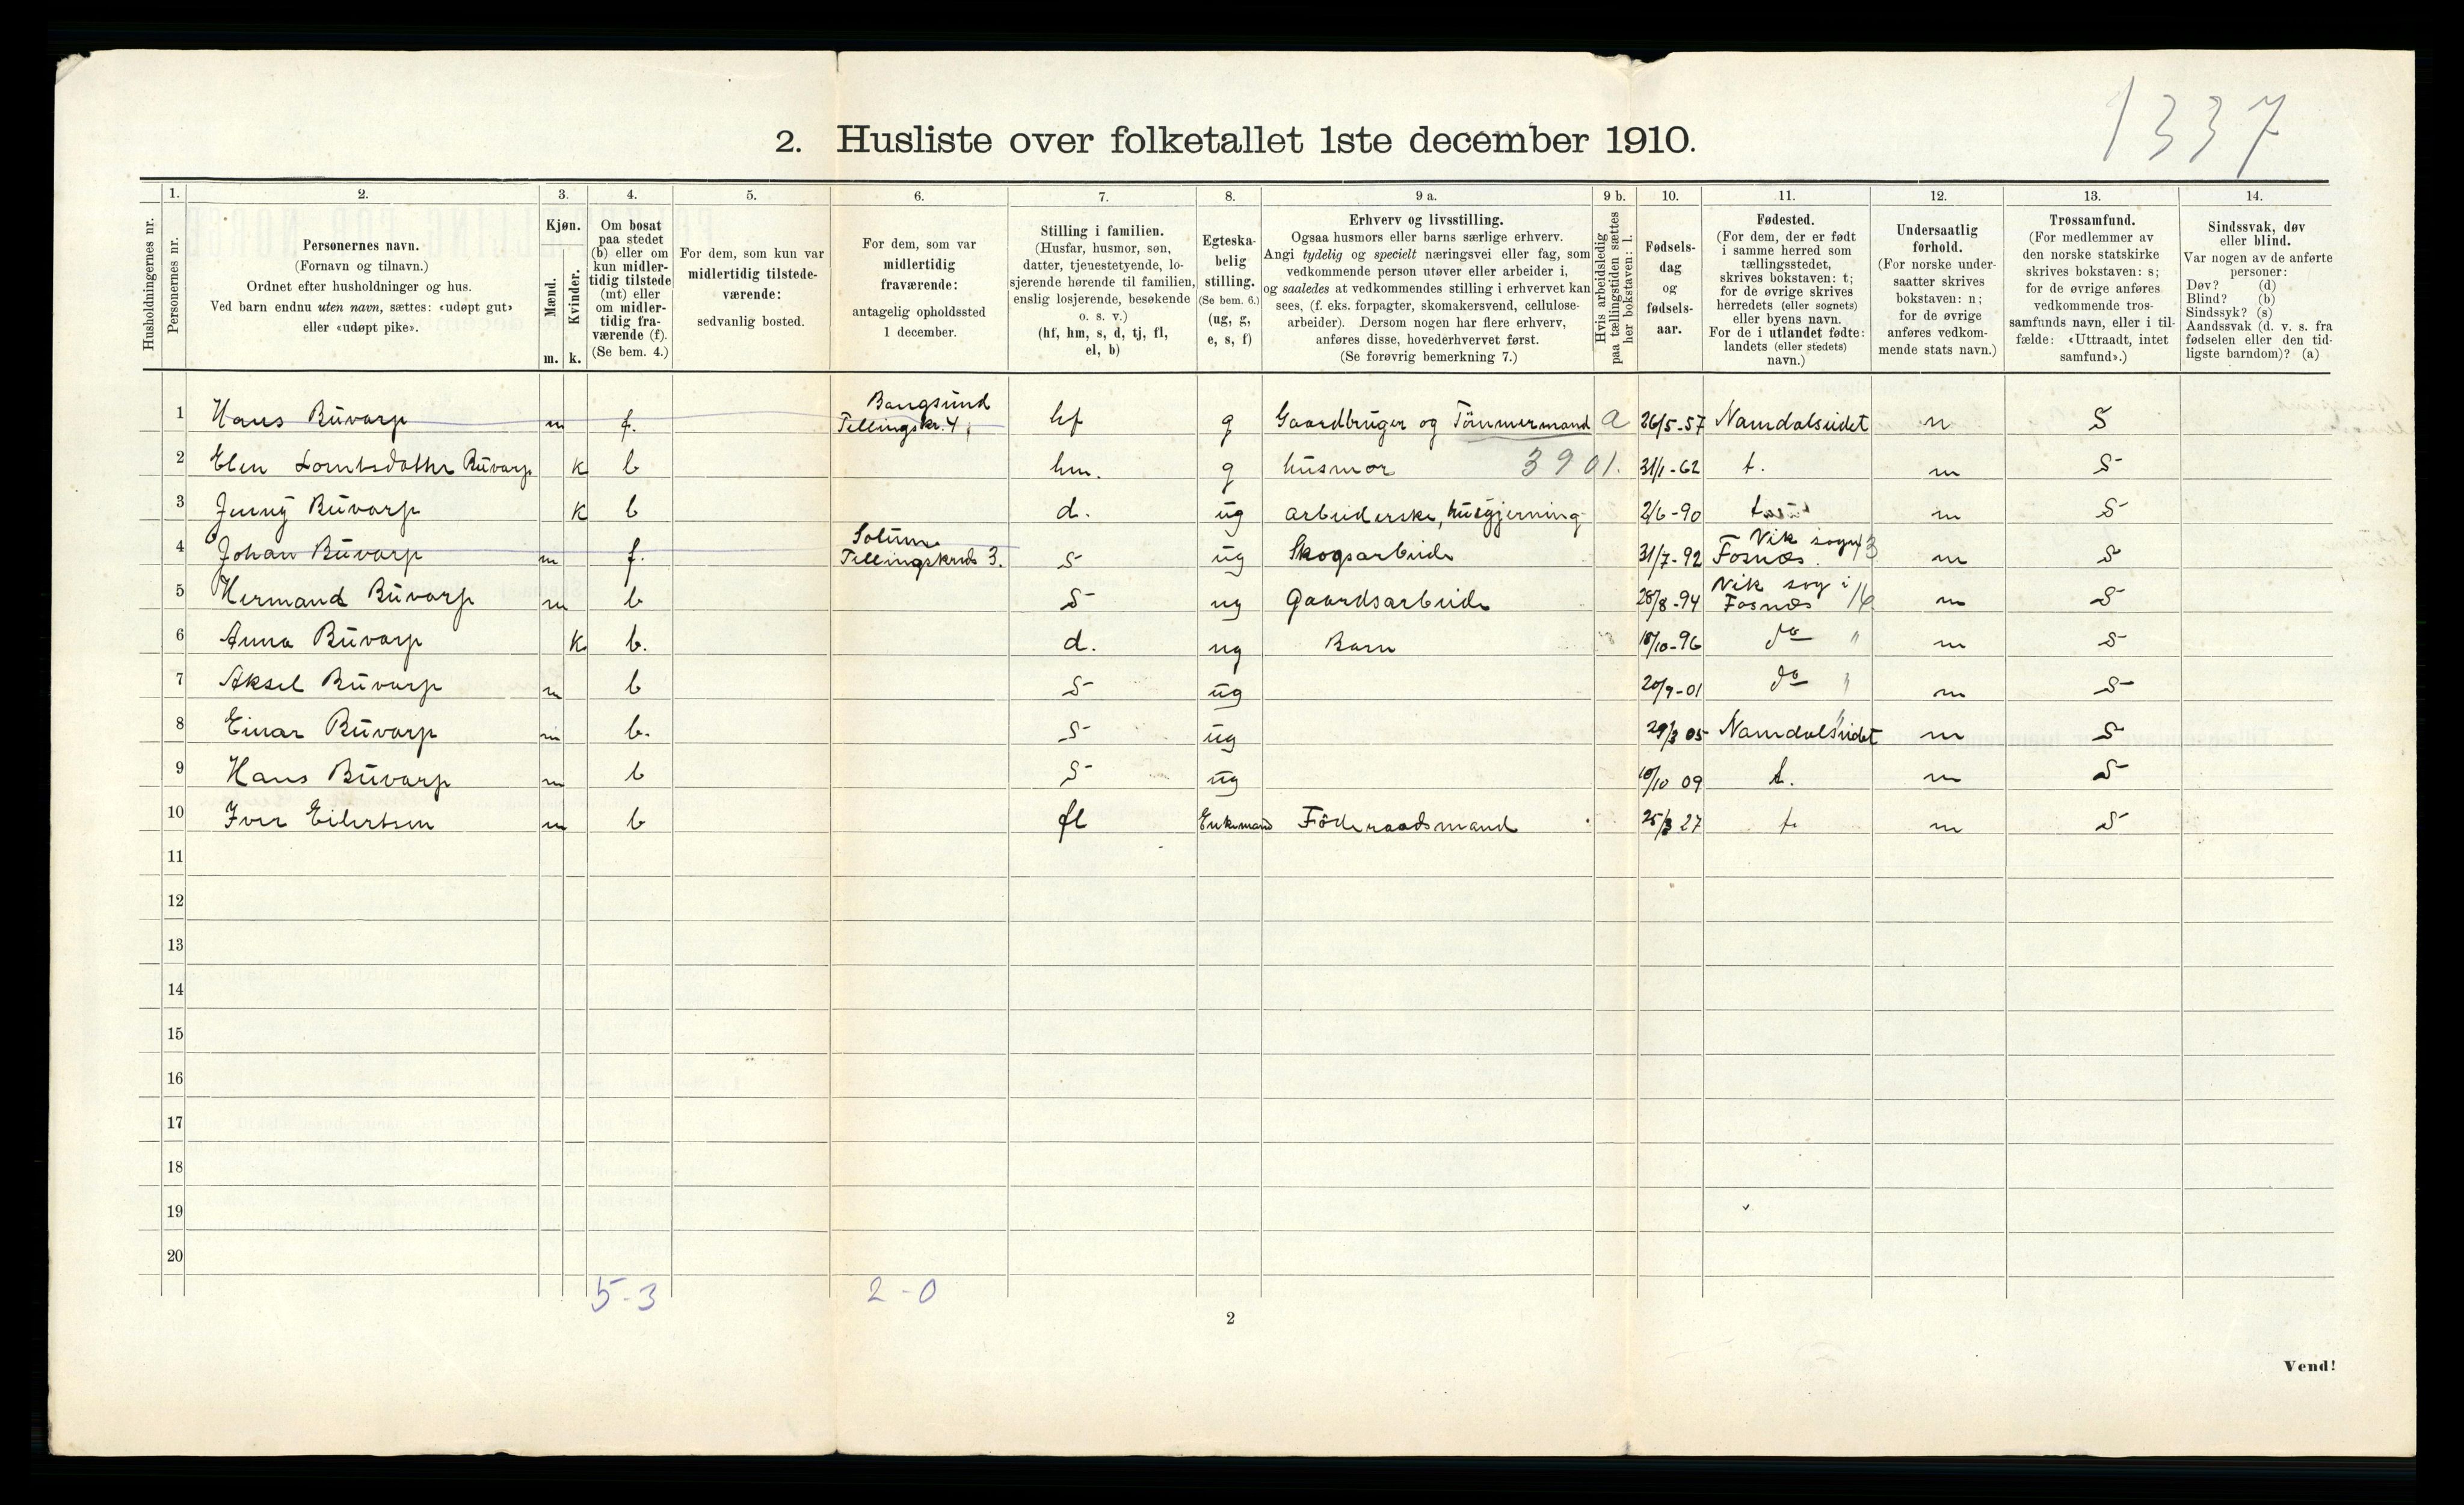 1337
2. Husliste over folketallet 1ste december 1910.
1. 2. 3. 4. 5. 6. 7. 8. 9 a. 9 b. 10. 11. 12. 13. 14.
Husholdningernes nr.
Personernes nr.
Personernes navn.
(Fornavn og tilnavn.)
Ordnet efter husholdninger og hus.
Ved barn endnu uten navn, sættes: «udøpt gut»
eller «udøpt pike».
Kjøn.
Mænd.
Kvinder.
m. k.
Om bosat
paa stedet
(b) eller om
kun midler-
tidig tilstede
(mt) eller
om midler-
tidig fra-
værende (f).
(Se bem. 4.)
For dem, som kun var
midlertidig tilstede-
værende:
sedvanlig bosted.
For dem, som var
midlertidig
fraværende:
antagelig opholdssted
1 december.
Stilling i familien.
(Husfar, husmor, søn,
datter, tjenestetyende, lo-
sjerende hørende til familien,
enslig losjerende, besøkende
o. s. v.)
(hf, hm, s, d, tj, fl,
el, b)
Egteska-
belig
stilling.
(Se bem. 6.)
(ug, g,
e, s, f)
Erhverv og livsstilling.
Ogsaa husmors eller barns særlige erhverv.
Angi tydelig og specielt næringsvei eller fag, som
vedkommende person utøver eller arbeider i,
og saaledes at vedkommendes stilling i erhvervet kan
sees, (f. eks. forpagter, skomakersvend, cellulose-
arbeider). Dersom nogen har flere erhverv,
anføres disse, hovederhvervet først.
(Se forøvrig bemerkning 7.)
Hvis arbeidsledig
paa tællingstiden sættes
her bokstaven: l.
Fødsels-
dag
og
fødsels-
aar.
Fødested.
(For dem, der er født
i samme herred som
tællingsstedet,
skrives bokstaven: t;
for de øvrige skrives
herredets (eller sognets)
eller byens navn.
For de i utlandet fødte:
landets (eller stedets)
navn.)
Undersaatlig
forhold.
(For norske under-
saatter skrives
bokstaven: n;
for de øvrige
anføres vedkom-
mende stats navn.)
Trossamfund.
(For medlemmer av
den norske statskirke
skrives bokstaven: s;
for de øvrige anføres
vedkommende tros-
samfunds navn, eller i til-
fælde: «Uttraadt, intet
samfund».)
Sindssvak, døv
eller blind.
Var nogen av de anførte
personer:
Døv? (d)
Blind? (b)
Sindssyk? (s)
Aandssvak (d. v. s. fra
fødselen eller den tid-
ligste barndom)? (a)
1 Hans Buvarp m f. Bangsund Tellingskr. 4, hf g Gaardbruger og Tömmermand a 26/5-57 Namdalseidet n S
2 Elen Lorntsdatter Buvarp k b hm. g husmor 3901. 31/1-62 t. n S
3 Jenny Buvarp k b d. ug arbeiderske, husgjerning 2/6-90 t n S
4 Johan Buvarp m f. Solum Tellingskreds 3. S ug Skogsarbeide 31/7-92 Vik sogn Fosnæs. n S
5 Hermand Buvarp m b S ug Gaardsarbeide 28/8-94 Vik sog i Fosnæs n S
6 Anna Buvarp k b. d. ug Barn 18/10-96 do " n S
7 Aksel Buvarp m b S ug 20/9-01 do n S
8 Einar Buvarp m b. S ug 29/3 05 Namdalseidet n S
9 Hans Buvarp m b S ug 10/10 09 t. n S
10 Iver Eilertsen m b fl Enkemand Föderaadsmand 25/3 27 t. n S
11
12
13
14
15
16
17
18
19
20
5-3 2-0
2
Vend!